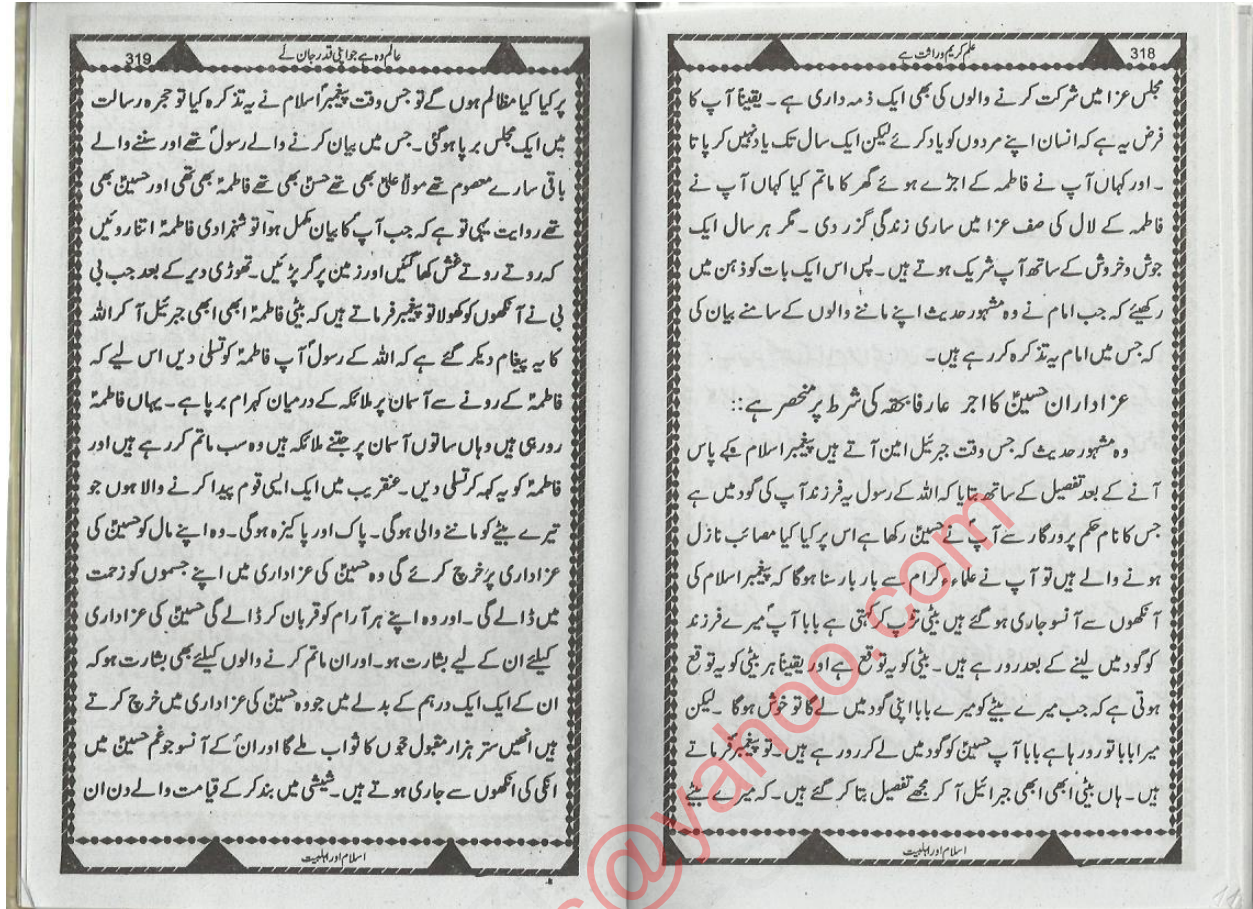 318
علم کریم وراثت ہے
مجلس عزا میں شرکت کرنے والوں کی بھی ایک ذمہ داری ہے ۔ یقیناً آپ کا
فرض یہ ہے کہ انسان اپنے مردوں کو یاد کرے لیکن ایک سال تک یاد نہیں کر پاتا
۔ اور کہاں آپ نے فاطمہ کے اجڑے ہوئے گھر کا ماتم کیا کہاں آپ نے
فاطمہ کے لال کی صف عزا میں ساری زندگی گزر دی ۔ مگر ہر سال ایک
جوش و خروش کے ساتھ آپ شریک ہوتے ہیں ۔ پس اس ایک بات کو ذہن میں
رکھیئے کہ جب امام نے وہ مشہور حدیث اپنے ماننے والوں کے سامنے بیان کی
کہ جس میں امام یہ تذکرہ کر رہے ہیں ۔
عزاداران حسینؑ کا اجر عارفا بحقہ کی شرط پر منحصر ہے ::
وہ مشہور حدیث کہ جس وقت جبرئیل امین آتے ہیں پیغمبر اسلام کے پاس
آنے کے بعد تفصیل کے ساتھ بتایا کہ اللہ کے رسول یہ فرزند آپ کی گود میں ہے
جس کا نام حکم پرورگار سے آپؐ نے حسینؑ رکھا ہے اس پر کیا کیا مصائب نازل
ہونے والے ہیں تو آپ نے علماء کرام سے بار بار سنا ہوگا کہ پیغمبر اسلام کی
آنکھوں سے آنسو جاری ہو گئے ہیں بیٹی تڑپ کر کہتی ہے بابا آپؐ میرے فرزند
کو گود میں لینے کے بعد رو رہے ہیں ۔ بیٹی کو یہ توقع ہے اور یقیناً ہر بیٹی کو یہ توقع
ہوتی ہے کہ جب میرے بیٹے کو میرے بابا اپنی گود میں لے گا تو خوش ہوگا ۔ لیکن
میرا بابا تو رو رہا ہے بابا آپ حسینؑ کو گود میں لے کر رو رہے ہیں ۔ تو پیغمبرؐ فرماتے
ہیں ۔ ہاں بیٹی ابھی ابھی جبرائیل آ کر مجھے تفصیل بتا کر گئے ہیں ۔ کہ میرے بیٹے
اسلام اور اہلبیت
319
عالم وہ ہے جو اپنی قدر جان لے
پر کیا کیا مظالم ہوں گے تو جس وقت پیغمبرؐ اسلام نے یہ تذکرہ کیا تو حجرہ رسالت
میں ایک مجلس برپا ہو گئی ۔ جس میں بیان کرنے والے رسولؐ تھے اور سننے والے
باقی سارے معصوم تھے مولا علیؑ بھی تھے حسنؑ بھی تھے فاطمہؑ بھی تھی اور حسینؑ بھی
تھے روایت یہی تو ہے کہ جب آپؐ کا بیان مکمل ہوا تو شہزادی فاطمہؑ اتنا روئیں
کہ روتے روتے غش کھا گئیں اور زمین پر گر پڑئیں ۔ تھوڑی دیر کے بعد جب بی
بی نے آنکھوں کو کھولا تو پیغمبرؐ فرماتے ہیں کہ بیٹی فاطمہؑ ابھی ابھی جبرئیل آ کر اللہ
کا یہ پیغام دیکر گئے ہے کہ اللہ کے رسولؐ آپ فاطمہؑ کو تسلی دیں اس لیے کہ
فاطمہؑ کے رونے سے آسمان پر ملائکہ کے درمیان کہرام برپا ہے ۔ یہاں فاطمہؑ
رو رہی ہیں وہاں ساتوں آسمان پر جتنے ملائکہ ہیں وہ سب ماتم کر رہے ہیں اور
فاطمہؑ کو یہ کہہ کر تسلی دیں ۔ عنقریب میں ایک ایسی قوم پیدا کرنے والا ہوں جو
تیرے بیٹے کو ماننے والی ہوگی ۔ پاک اور پاکیزہ ہوگی ۔ وہ اپنے مال کو حسینؑ کی
عزاداری پر خرچ کرئے گی وہ حسینؑ کی عزاداری میں اپنے جسموں کو زحمت
میں ڈالے گی ۔ اور وہ اپنے ہر آرام کو قربان کر ڈالے گی حسینؑ کی عزاداری
کیلئے ان کے لیے بشارت ہو ۔ اور ان ماتم کرنے والوں کیلئے بھی بشارت ہو کہ
ان کے ایک ایک درہم کے بدلے میں جو وہ حسینؑ کی عزاداری میں خرچ کرتے
ہیں انھیں ستر ہزار مقبول حجوں کا ثواب ملے گا اور ان کے آنسو جو غم حسینؑ میں
انکی کی انکھوں سے جاری ہوتے ہیں ۔ شیشی میں بند کر کے قیامت والے دن ان
اسلام اور اہلبیت
s@yahoo.com